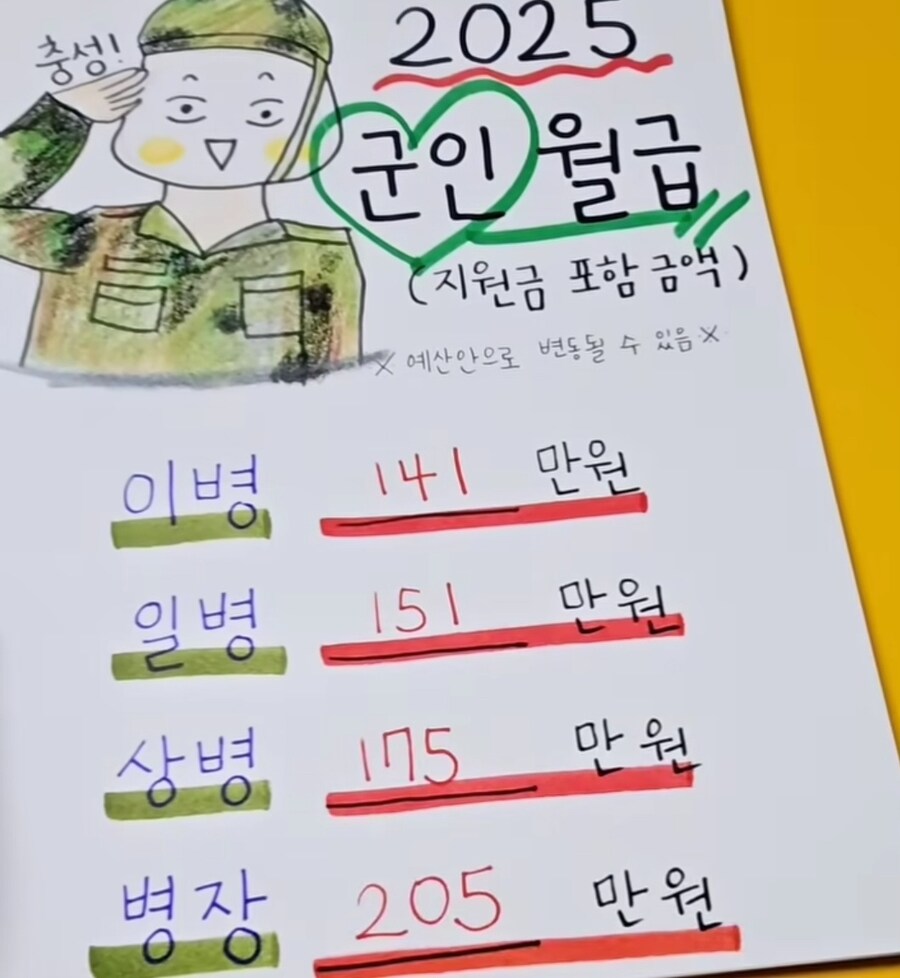 충성!
2025
군인 월급
(지원금 포함 금액)
※ 예산안으로 변동될 수 있음 ※
이병 141 만원
일병 151 만원
상병 175 만원
병장 205 만원